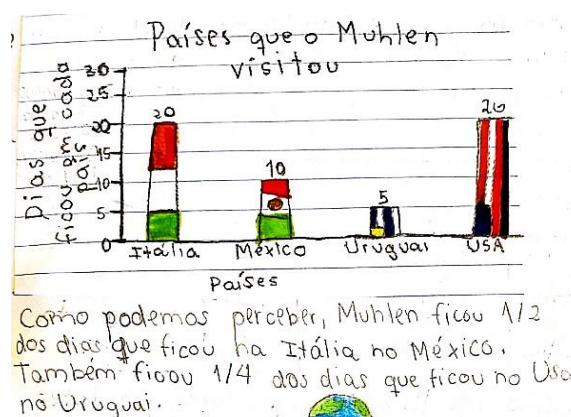 Países que o Muhlen
visitou
Dias que
ficou em cada
país
30
25
20
15
10
5
0
20
10
5
20
Itália
México
Uruguai
USA
Países
Como podemos perceber, Muhlen ficou 1/2
dos dias que ficou na Itália no México.
Também ficou 1/4 dos dias que ficou no Usa
no Uruguai.